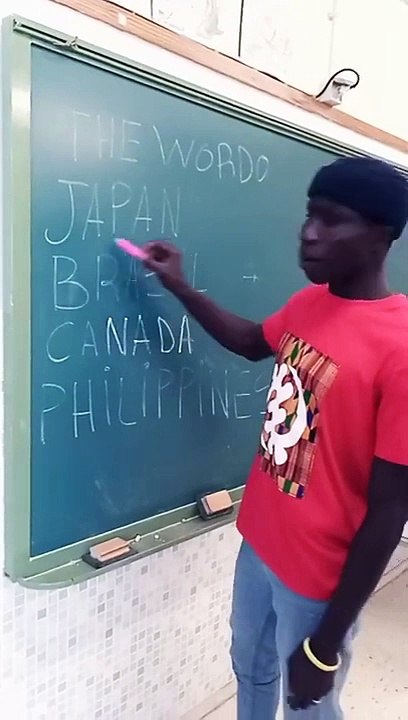 THE WORDO
JAPAN
BRASIL
CANADA
PHiLiPPiNES